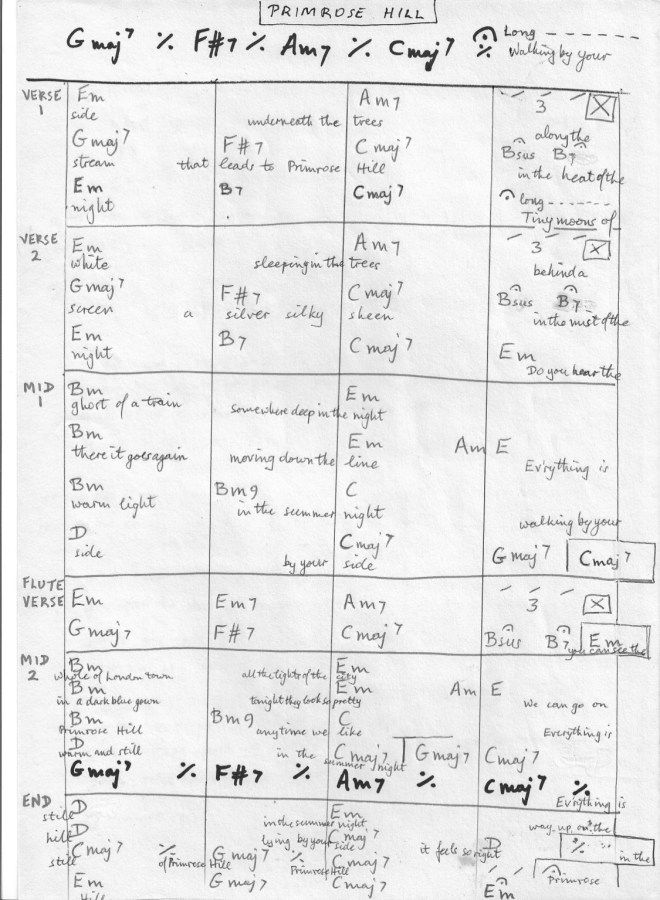 PRIMROSE HILL
Gmaj7 ٪ F#7 ٪ Am7 ٪ Cmaj7 ٪ Long
Walking by your
VERSE 1
Em Am7 3
side underneath the trees
Gmaj7 F#7 Cmaj7 along the Bsus B7
stream that leads to Primrose Hill in the heat of the
Em B7 Cmaj7 long
night Tiny moons of
VERSE 2
Em Am7 3
white sleeping in the trees behind a
Gmaj7 F#7 Cmaj7 Bsus B7
screen a silver silky sheen in the mist of the
Em B7 Cmaj7 Em
night Do you hear the
MID 1
Bm Em
ghost of a train somewhere deep in the night
Bm Em Am E
there it goes again moving down the line Ev'rything is
Bm Bm9 C
warm light in the summer night walking by your
D Cmaj7 Gmaj7 Cmaj7
side by your side
FLUTE VERSE
Em Em7 Am7 3
Gmaj7 F#7 Cmaj7 Bsus B7 Em
you can see the
MID 2
Bm Em
whole of London town all the lights of the city
Bm Em Am E
in a dark blue gown tonight they look so pretty We can go on
Bm Bm9 C
Primrose Hill anytime we like Everything is
D Cmaj7 Gmaj7 Cmaj7
warm and still in the summer night
Gmaj7 ٪ F#7 ٪ Am7 ٪ Cmaj7 ٪
Ev'rything is
END
D Em
still in the summer night way up on the
D Cmaj7 D ٪
hill lying by your side it feels so right in the
Cmaj7 ٪ Gmaj7 ٪ Cmaj7
still of Primrose Hill Primrose Hill Primrose
Em Gmaj7 Cmaj7 Em
Hill